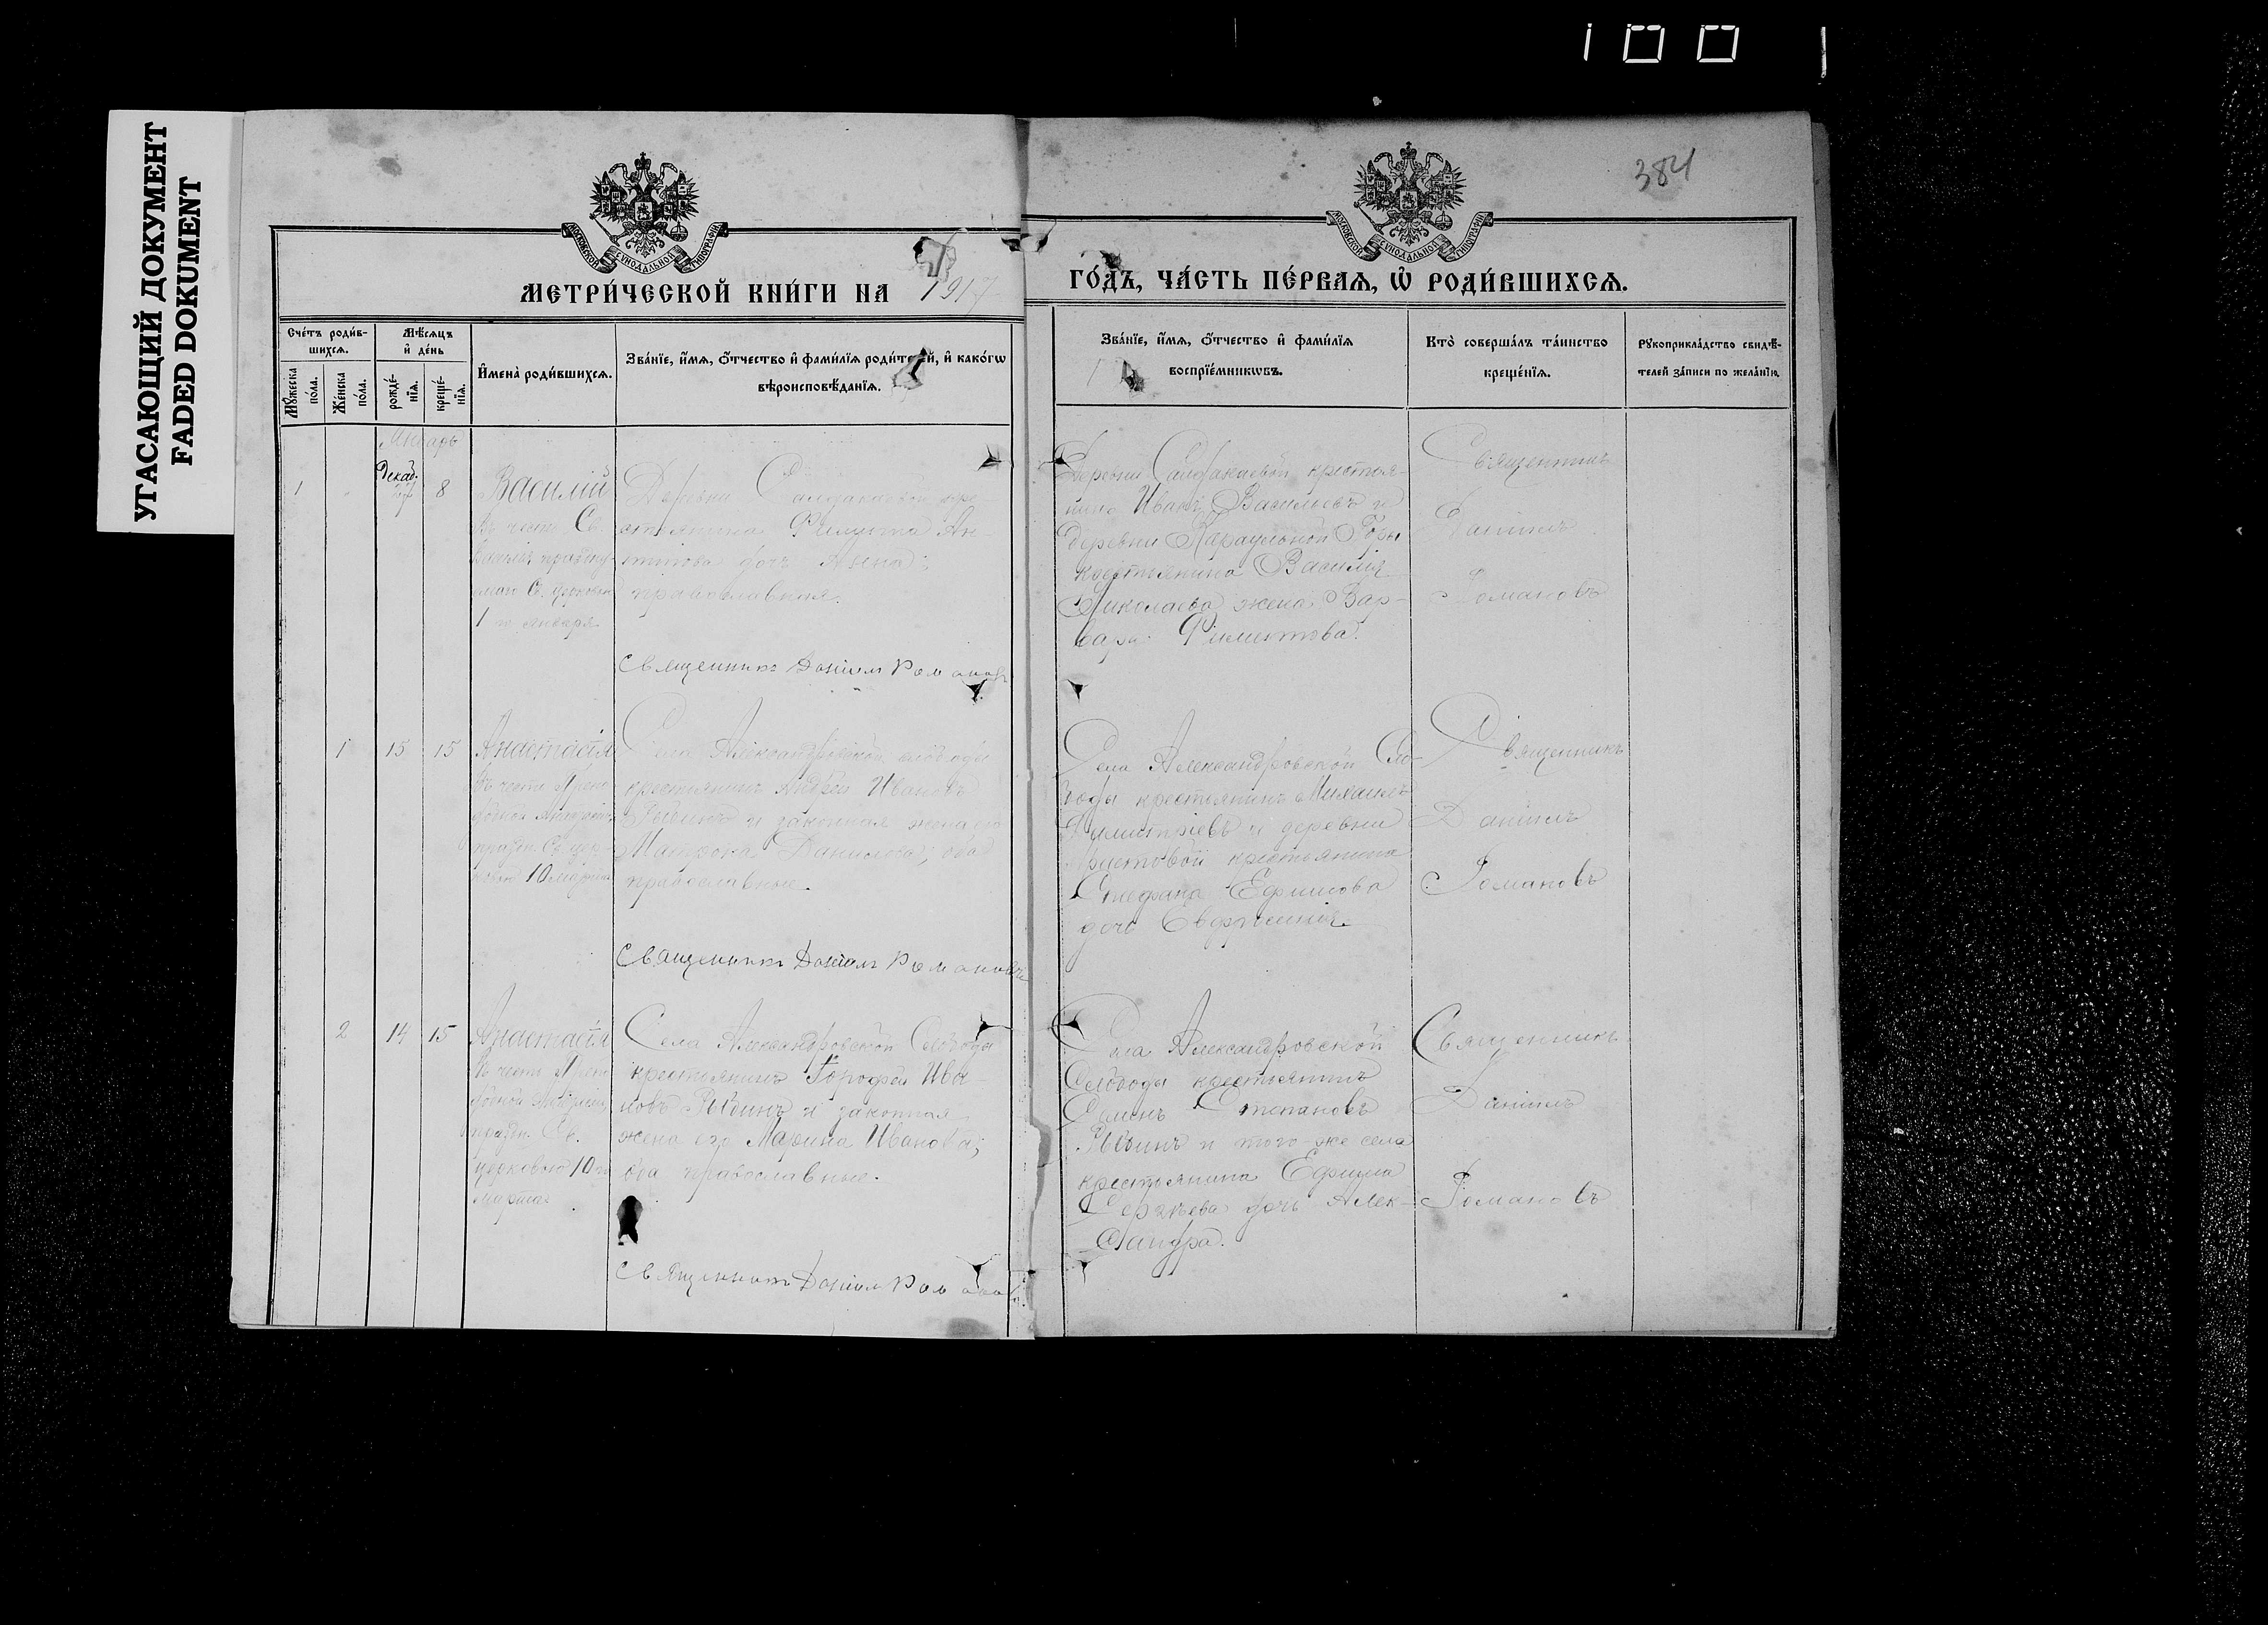 100
УГАСАЮЩИЙ ДОКУМЕНТ
FADED DOKUMENT
384
МОСКОВСКОЙ СѴНОДАЛЬНОЙ ТИПОГРАФІИ
МОСКОВСКОЙ СѴНОДАЛЬНОЙ ТИПОГРАФІИ
МЕТРИ́ЧЕСКОЙ КНИ́ГИ НА 1917
ГО́ДЪ, ЧА́СТЬ ПЕ́РВАѦ, Ѡ҆ РОДИ́ВШИХСѦ.
Сче́тъ роди́в-
шихсѧ.
Мꙋ́жеска по́ла.
Же́нска по́ла.
Мѣ́сѧцъ
и҆ де́нь
рожде́-нїѧ.
креще́-нїѧ.
И҆мена̀ роди́вшихсѧ.
Зва́нїе, и҆́мѧ, ѻ҆́тчество и҆ фами́лїѧ роди́телей, и҆ како́гѡ
вѣроисповѣ́данїѧ.
Зва́нїе, и҆́мѧ, ѻ҆́тчество и҆ фами́лїѧ
воспрїе́мникѡвъ.
Кто̀ соверша́лъ та́инство
креще́нїѧ.
Рꙋкоприкла́дство свидѣ́-
телей за́писи по жела́нїю.
Январь
Декаб.
1 27 8
Василій
въ честь Св.
Василія, праздну-
емаго Св. церковію
1 го января
Деревни кре-
стьянина Филиппа Ан-
типова дочь Анна;
православная.
Священникъ Даніилъ Романовъ
Деревни крестья-
нинъ Иванъ Васильевъ и
деревни Караульной Горы
крестьянина Василія
Николаева жена Вар-
вара Филиппова.
Священникъ
Даніилъ
Романовъ
1 15 15
Анастасія
въ честь Препо-
добной
праздн. Св. цер-
ковію 10 марта
Села Александровской слободы
крестьянинъ Андрей Ивановъ
и законная жена его
Матрона Данилова; оба
православные.
Священникъ Даніилъ Романовъ
Села Александровской Сло-
боды крестьянинъ Михаилъ
Димитріевъ и деревни
крестьянина
Стефана Ефимова
дочь Евфросинія.
Священникъ
Даніилъ
Романовъ
2 14 15
Анастасія
въ честь Препо-
добной
праздн. Св.
церковію 10 го
марта
Села Александровской Слободы
крестьянинъ Дорофей Ива-
новъ и законная
жена его Марина Иванова;
оба православные.
Священникъ Даніилъ Романовъ
Села Александровской
Слободы крестьянинъ
Степановъ
и того-же села
крестьянина Ефима
Сергѣева дочь Алек-
сандра.
Священникъ
Даніилъ
Романовъ